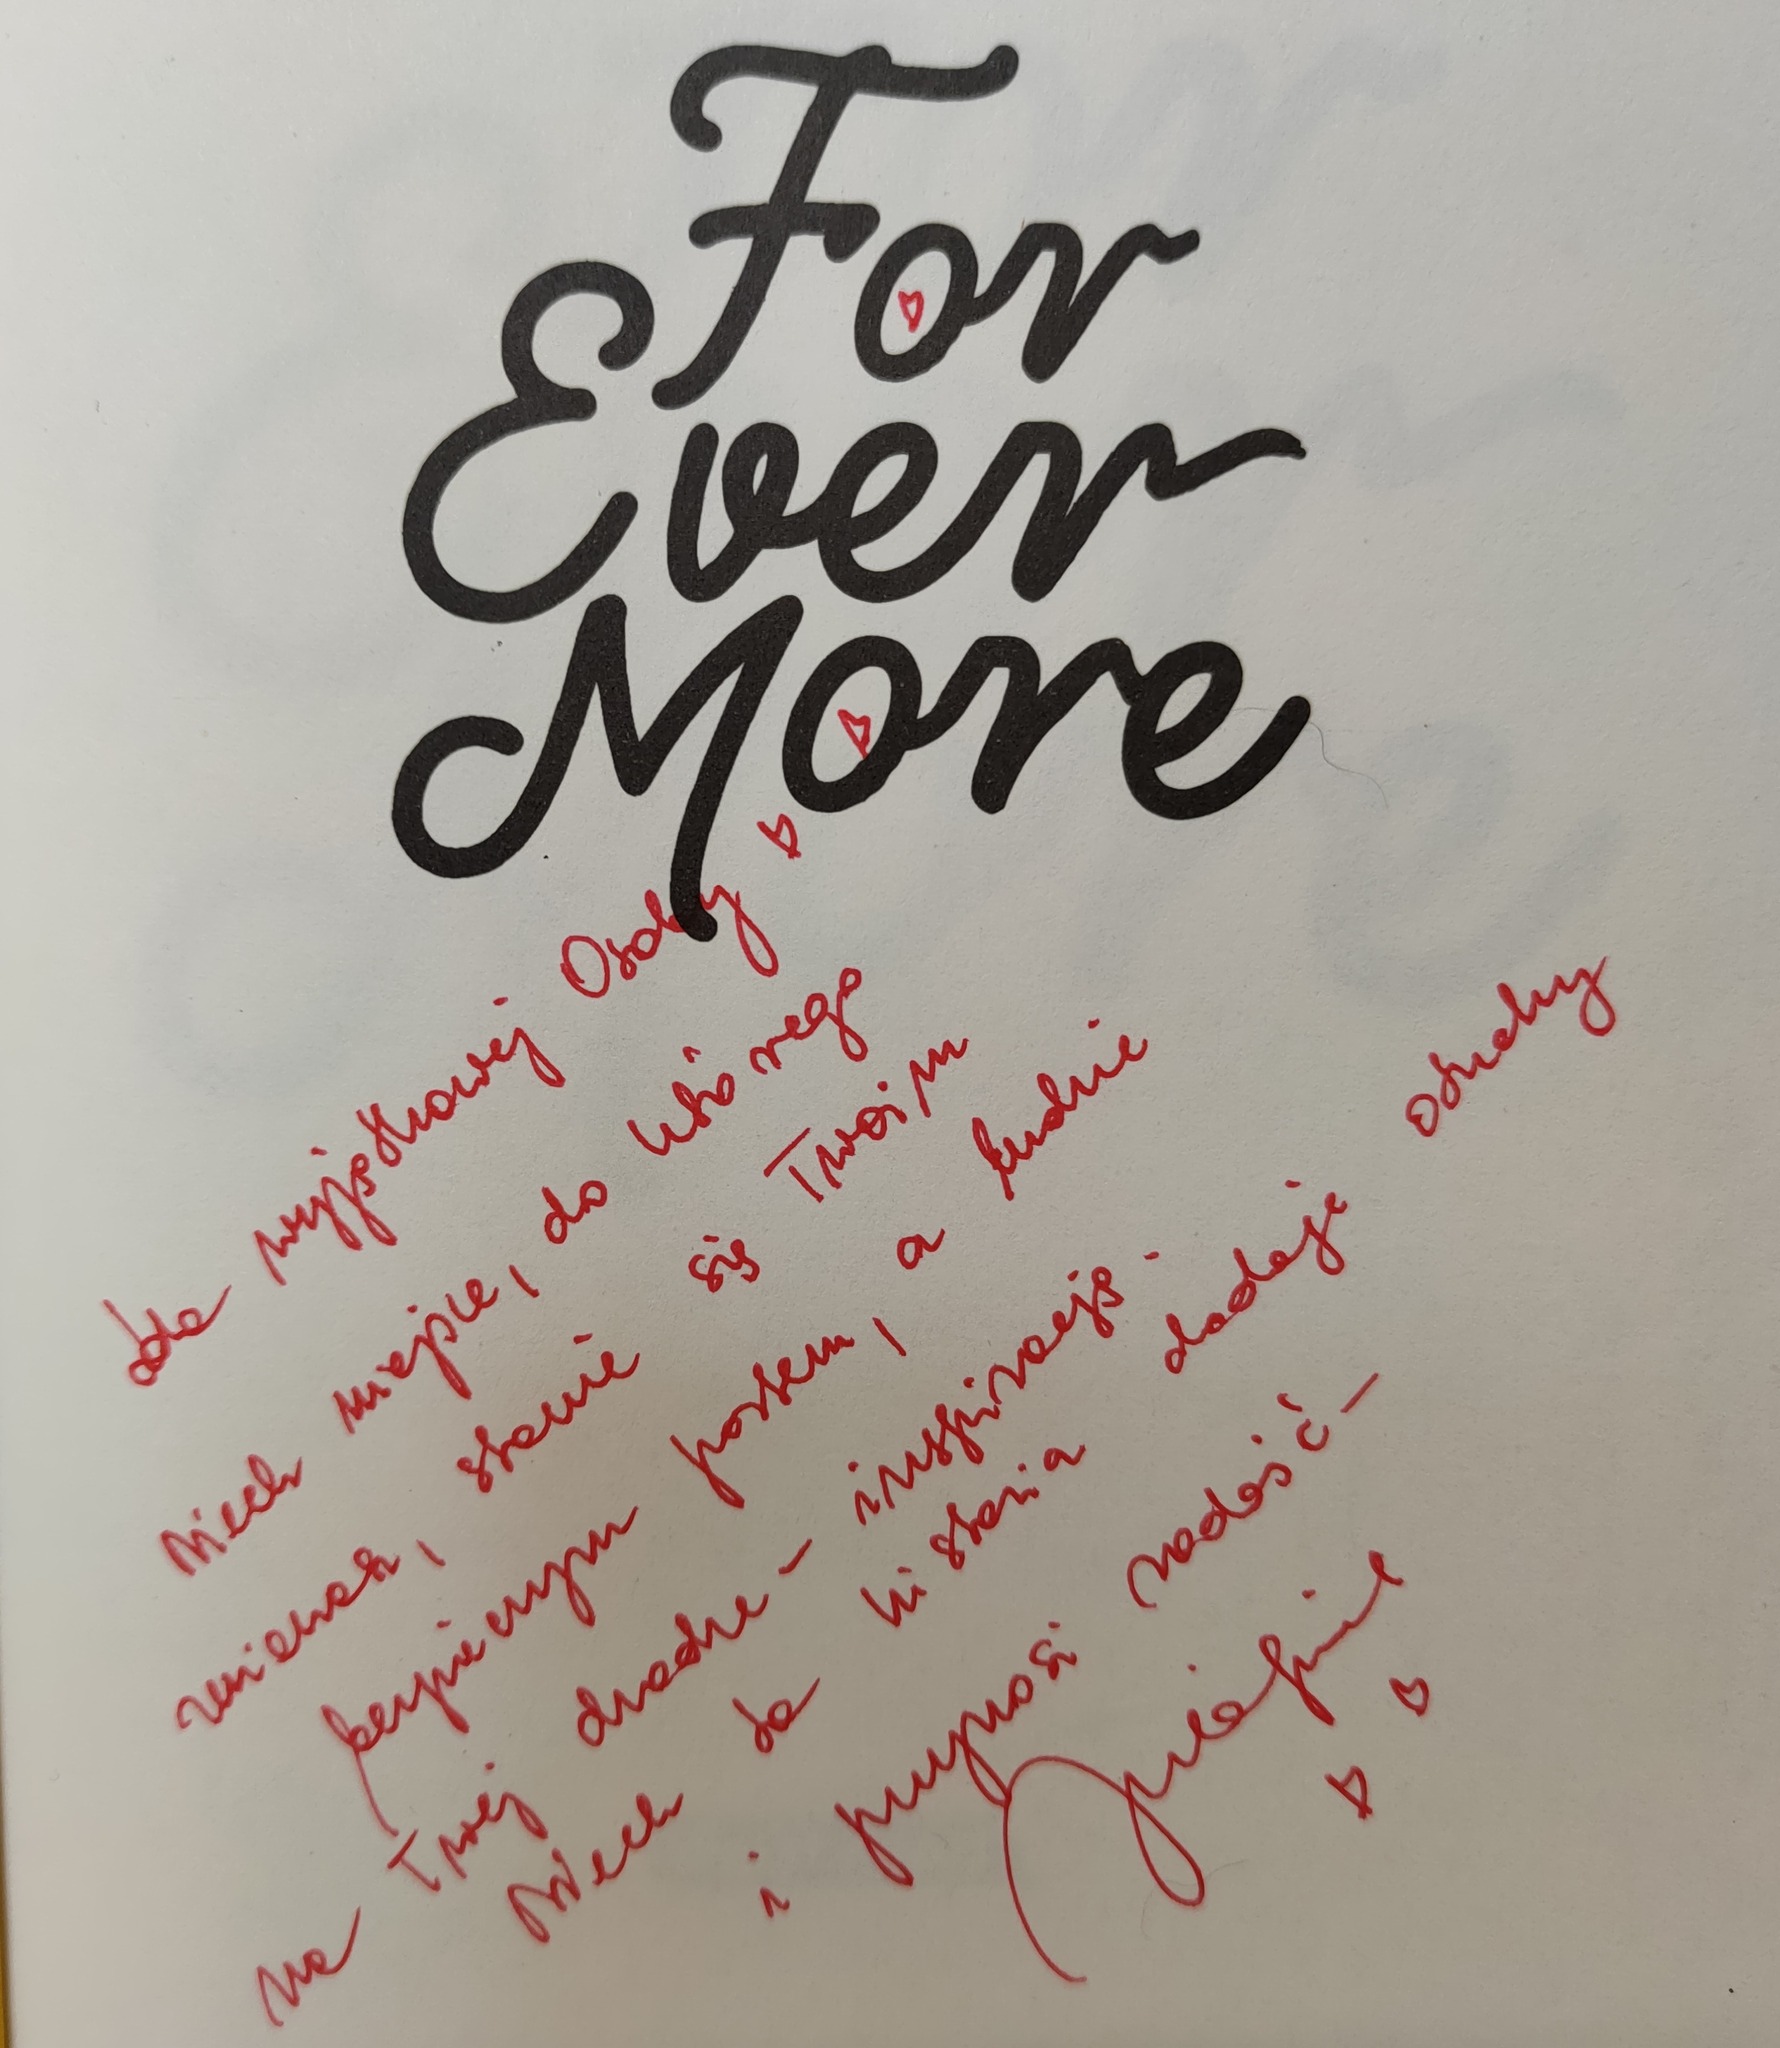 For
Ever
More
dla wyjątkowej Osoby
Niech miejsce, do którego
uciekasz, stanie się Twoim
bezpiecznym portem, a ludzie
na Twej drodze - inspiracją.
Niech ta historia dodaje otuchy
i przynosi radość -